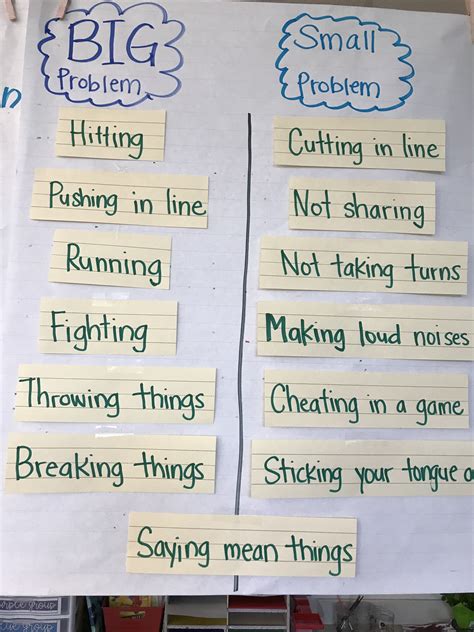 BIG
Problem
Small
Problem
Hitting
Pushing in line
Running
Fighting
Throwing things
Breaking things
Cutting in line
Not sharing
Not taking turns
Making loud noises
Cheating in a game
Sticking your tongue o
Saying mean things
group
group